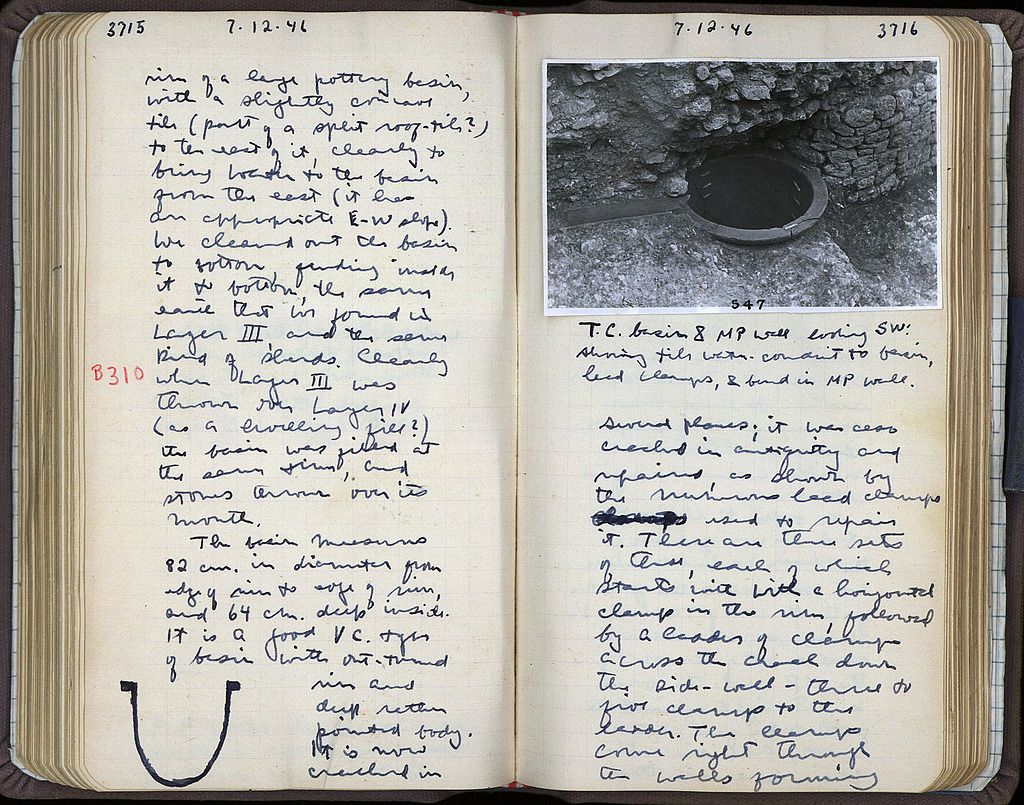 3715 7.12.46
rim of a large pottery basin,
with a slightly concave
tile (part of a split roof-tile?)
to the east of it, clearly to
bring water to the basin
from the east (it has
an appropriate E-W slope).
We cleaned out the basin
to bottom, finding inside
it to bottom, the same
earth that we found in
Layer III, and the same
kind of sherds. Clearly
B310
when Layer III was
thrown over Layer IV
(as a levelling fill?)
the basin was filled at
the same time, and
stones thrown over its
mouth.
The basin measures
82 cm. in diameter from
edge of rim to edge of rim,
and 64 cm. deep inside.
It is a good V C. type
of basin with out-turned
rim and
deep rather
pointed body.
It is now
cracked in
7.12.46 3716
547
T.C. basin & MP wall looking SW:
showing tile water-conduit to basin,
lead clamps, & bend in MP wall.
several places; it was also
cracked in antiquity and
repaired, as shown by
the numerous lead clamps
used to repair
it. There are three sets
of these, each of which
starts with with a horizontal
clamp in the rim, followed
by a ladder of clamps
across the crack down
the side-wall - three to
five clamps to the
ladder. The clamps
come right through
the walls forming